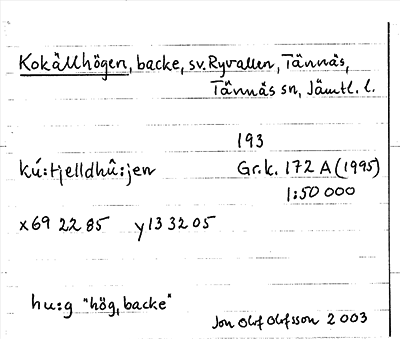 Kokällhögen, backe, sv. Ryvallen, Tännäs,
Tännäs sn, Jämtl. l.
193
kú:tjelldhû:jen Gr.k. 172 A (1995)
1:50 000
x69 22 85 y13 32 05
hu:g "hög, backe"
Jon Olof Olofsson 2003